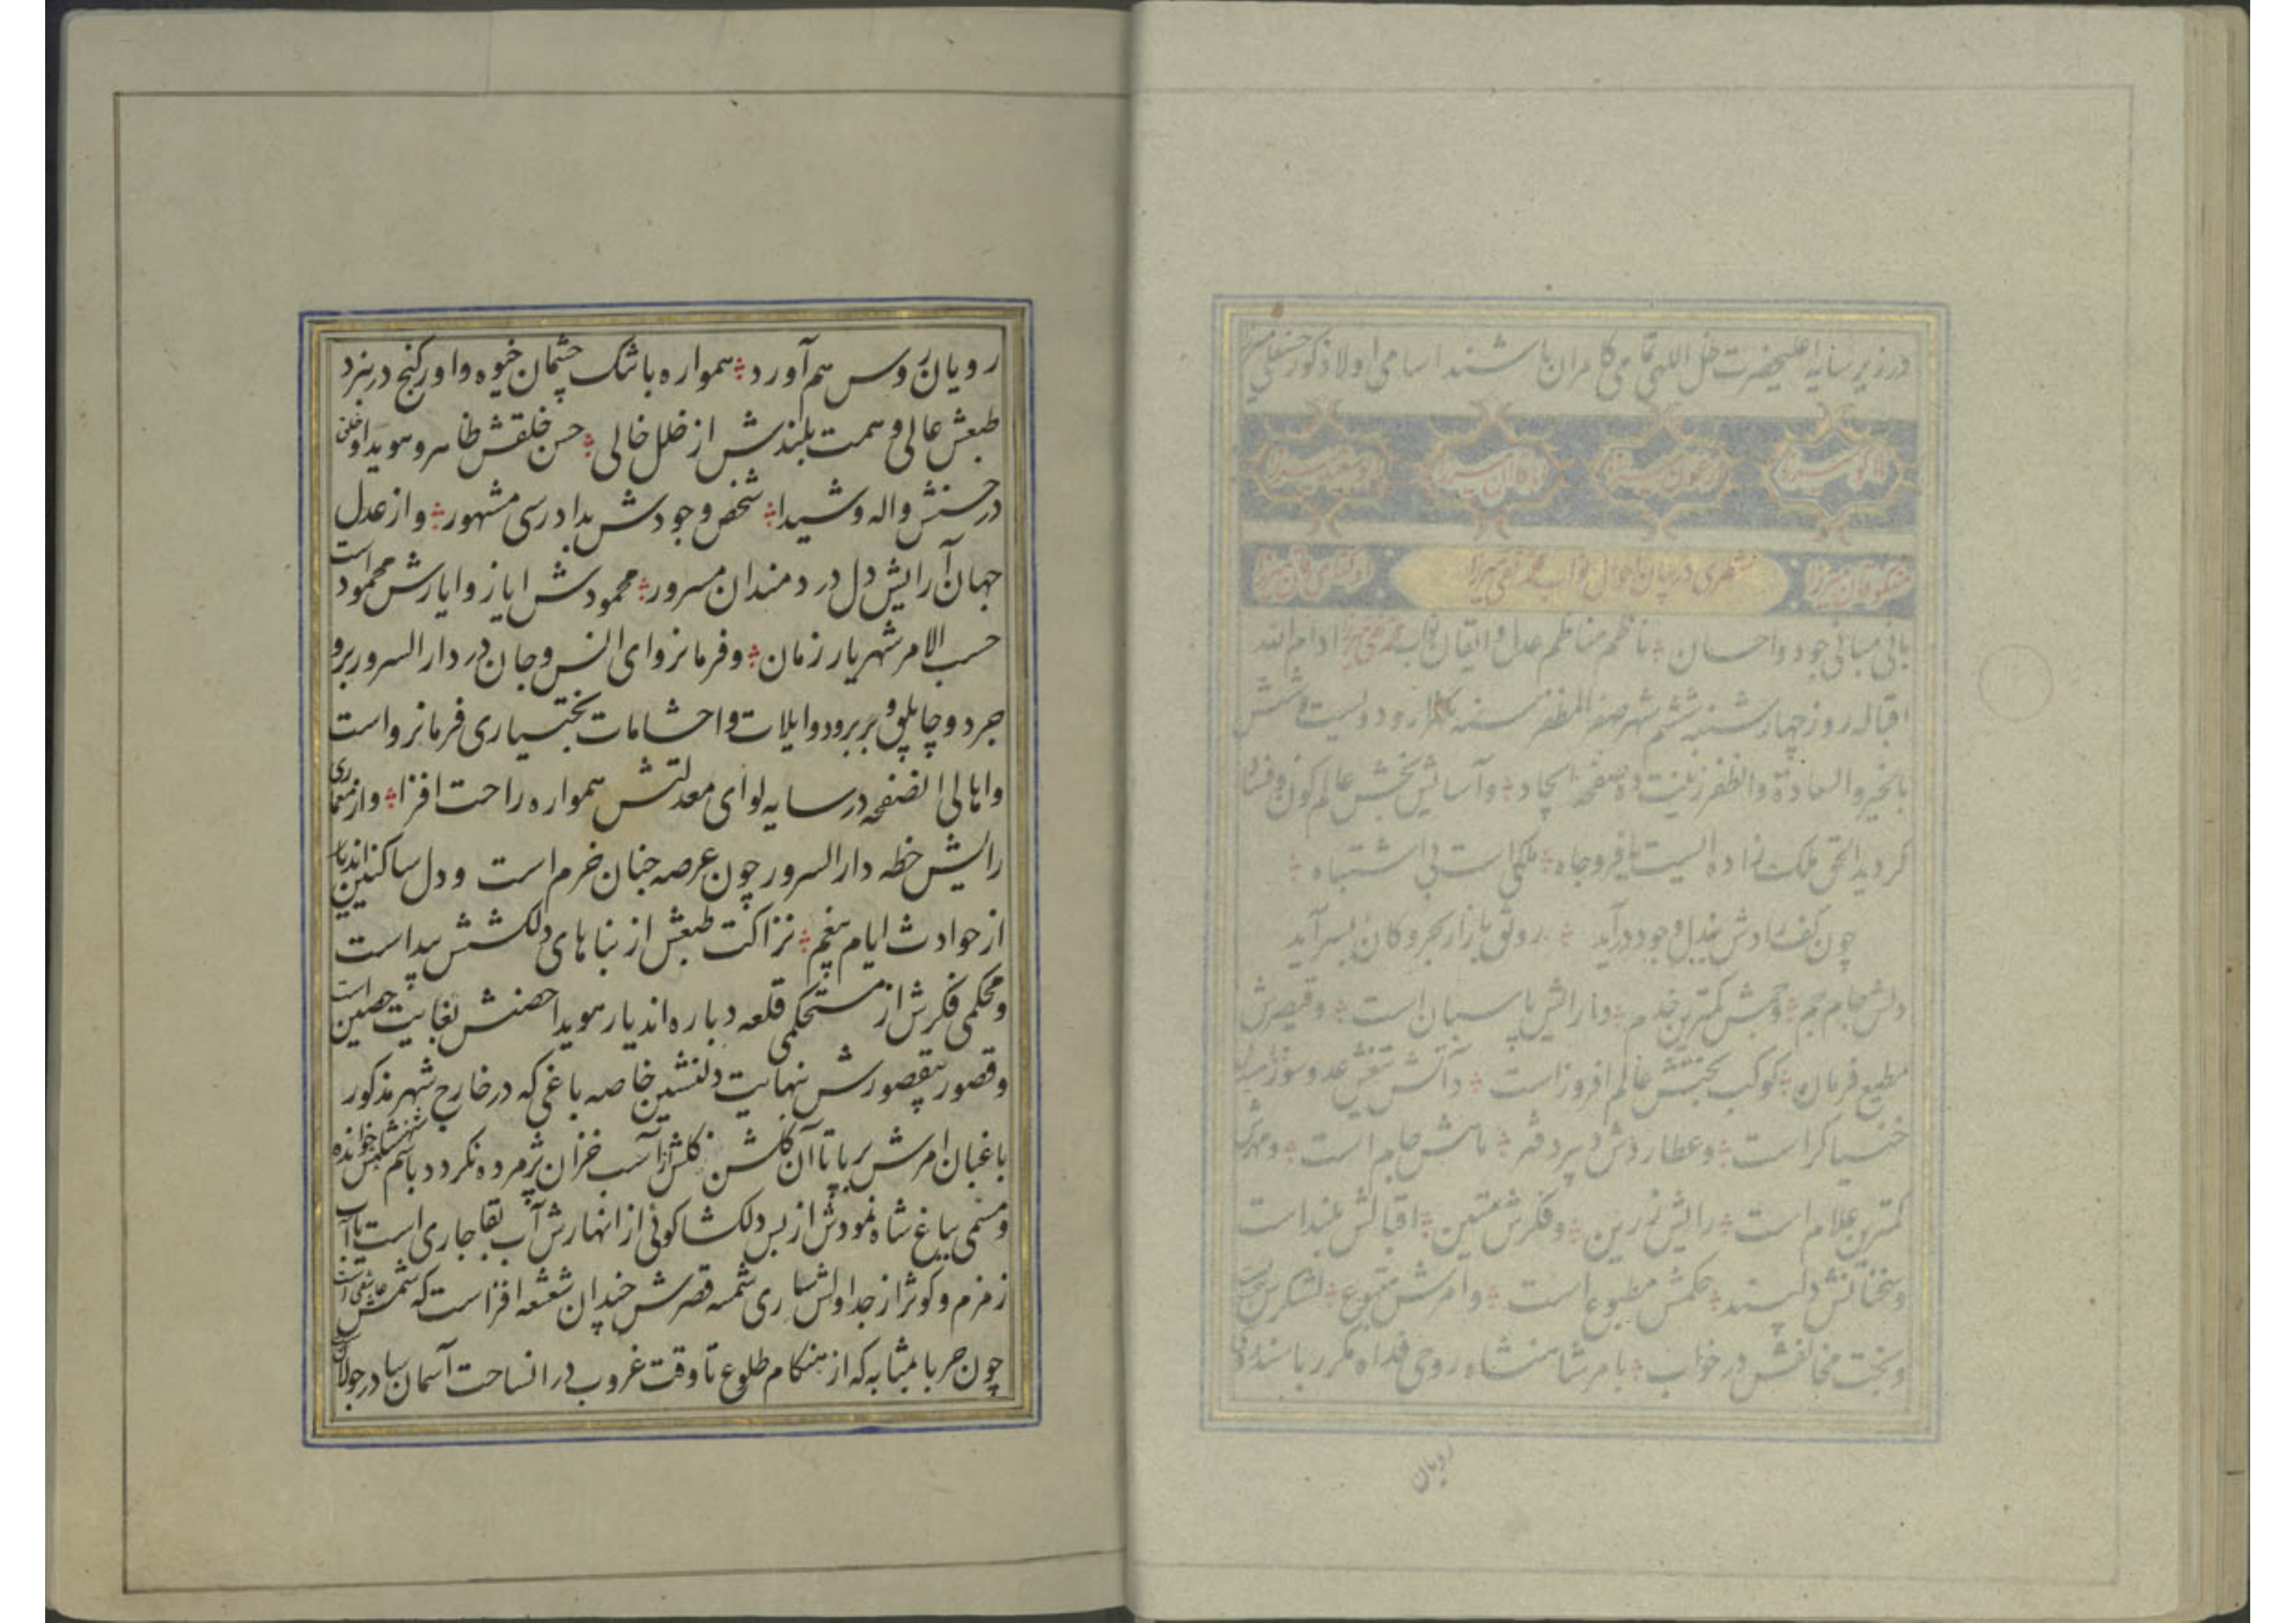 در زیر سایه اعلیحضرت ظل اللهی نامی کامران باشند اسامی اولاد ذکور حسنعلی میرزا
هلاکو میرزا ارغون میرزا اباقا آن میرزا ابوسعید میرزا
منظری در بیان احوال نواب محمد تقی میرزا
بانی مبانی جود و احسان ناظم مناظم عدل و ایقان نواب محمد تقی میرزا ادام الله
اقباله روز چهارشنبه ششم شهر صفر المظفر سنه هزار و دویست و شش
بالخیر و السعادة و الظفر زینت ده صفحه ایجاد و آسایش بخش عالم کون و فساد
گردید الحق ملک زاده ایست با فر و جاه ملکی است بی اشتباه
چون کف رادش ببذل و جود درآید رونق بازار بحر و کان بسر آید
دلش جام جم و جمش کمترین خدم دارایش پاسبان است و قیصرش
مطیع فرمان کوکب بختش عالم افروز است و آتش تیغش عدو سوز
خنیاگر است و عطاردش دبیر دفتر ماهش جام است و مهرش
کمترین غلام است رایش زرین و فکرش متین اقبالش بلند است
و سخنانش دلپسند حکمش مطبوع است و امرش متبوع لشکرش
و بخت مخالفش در خواب بامر شاهنشاه روحی فداه مکرر با
رویان
رویان روس هم آورد همواره با تنگ چشمان خیوه و اورکنج در نبرد
طبعش عالی و همت بلندش از خلل خالی حسن خلقش ظاهر و هویدا و خلق
در حسنش واله و شیدا شخص وجودش بدادرسی مشهور و از عدل
جهان آرایش دل دردمندان مسرور محمودش ایاز و ایازش محمود است
حسب الامر شهریار زمان و فرمانروای انس و جان در دار السرور برو
جرد و چاپلق و بربرود و ایلات و احشامات بختیاری فرمانرواست
و اهالی انصفحه در سایه لوای معدلتش همواره راحت افزا و از معماری
رایش خطه دار السرور چون عرصه جنان خرم است و دل ساکنین اندیار
از حوادث ایام بیغم نزاکت طبعش از بناهای دلکشش پیداست
و محکمی فکرش از مستحکمی قلعه و باره اندیار هویدا حصنش بغایت حصین است
و قصور بیقصورش بنهایت دلنشین خاصه باغی که در خارج شهر مذکور
باغبان امرش برپا تا آن گلشن گلش از آسیب خزان پژمرده نگردد باسم شهنشاهش خوانده
و مسمی بباغ شاه نمودش از بس دلکشا گوئی از انهارش آب بقا جاری است یا آب
زمزم و کوثر از جداولش ساری شمسه قصرش چندان شعشعه افزاست که شمسش عاشقی است
چون حربا بمثابه که از هنگام طلوع تا وقت غروب در انساحت آسمان سا در جولان